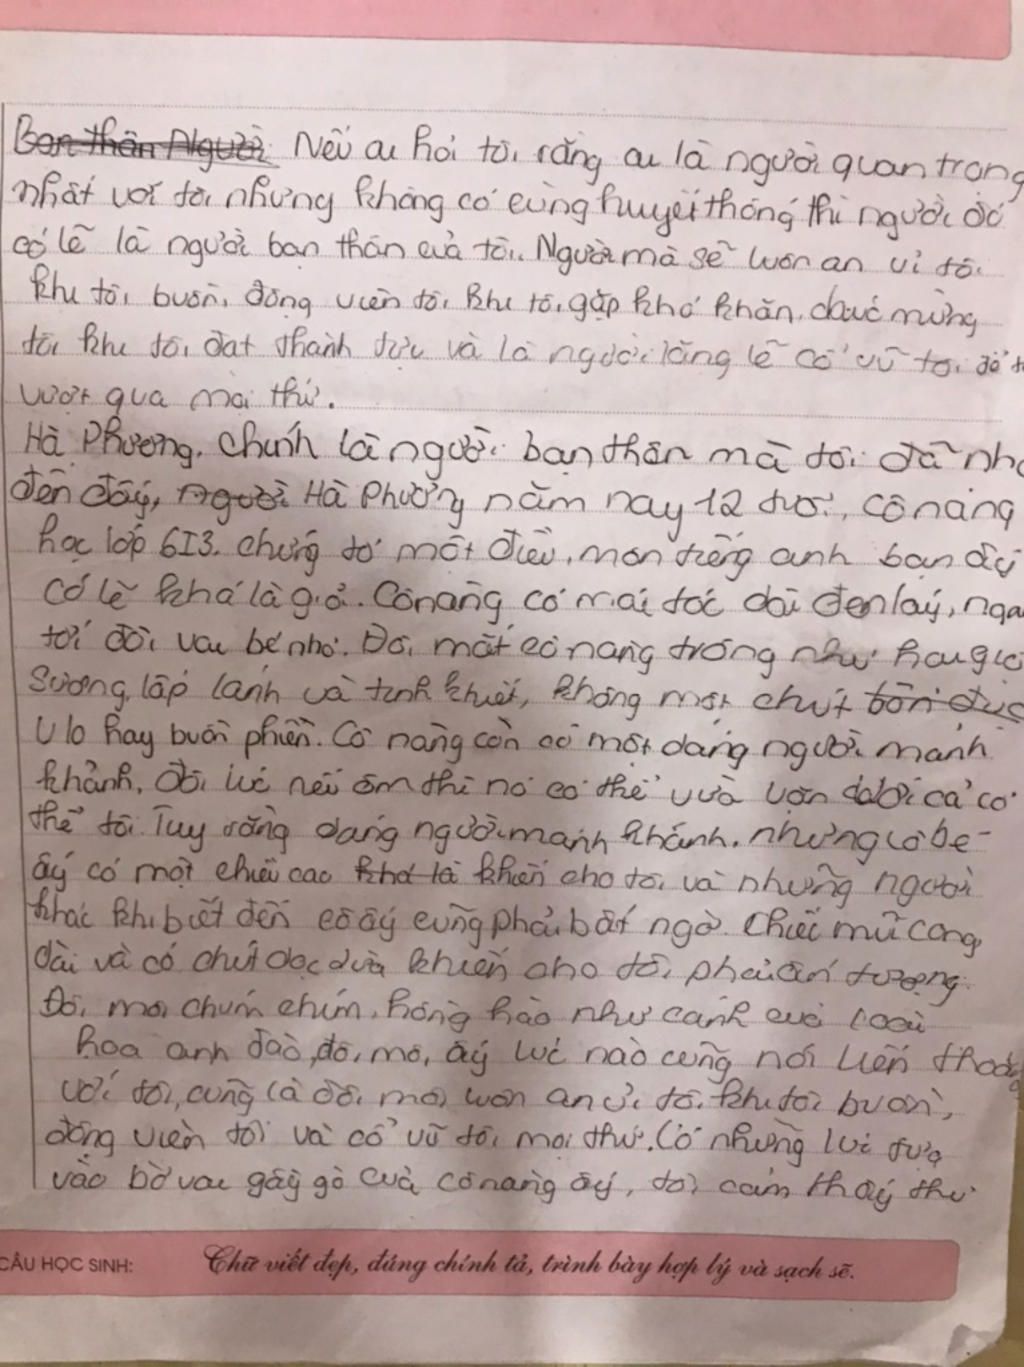 Nếu ai hỏi tôi rằng ai là người quan trọng
nhất với tôi nhưng không có cùng huyết thống thì người đó
có lẽ là người bạn thân của tôi. Người mà sẽ luôn an ủi tôi
khi tôi buồn, động viên tôi khi tôi gặp khó khăn, chúc mừng
tôi khi tôi đạt thành tựu và là người lặng lẽ cổ vũ tôi để
vượt qua mọi thứ.
Hà Phương, chính là người bạn thân mà tôi đã
đến đấy, Hà Phương năm nay 12 tuổi, cô nàng
học lớp 6I3, chứng tỏ một điều, môn tiếng anh bạn ấy
có lẽ khá là giỏi. Cô nàng có mái tóc dài đen láy,
tới đôi vai bé nhỏ. Đôi mắt cô nàng trông như hai
sương, lấp lánh và tinh khiết, không một chút
U lo hay buồn phiền. Cô nàng còn có một dáng người mảnh
khảnh, đôi lúc nếu ôm thì nó có thể vừa vặn dưới cả cơ
thể tôi. Tuy rằng dáng người mảnh khảnh, nhưng cô bé
ấy có một chiều cao khiến cho tôi và những người
khác khi biết đến cô ấy cũng phải bất ngờ. Chiếc mũi cong,
dài và có chút dọc dừa khiến cho tôi phải ấn tượng.
Đôi môi chúm chím, hồng hào như cánh của loài
hoa anh đào, đôi môi ấy lúc nào cũng nói liến thoắng
với tôi, cũng là đôi môi luôn an ủi tôi khi tôi buồn,
động viên tôi và cổ vũ tôi mọi thứ. Có những lúc tựa
vào bờ vai gầy gò của cô nàng ấy, tôi cảm thấy thư
CÂU HỌC SINH: Chữ viết đẹp, đúng chính tả, trình bày hợp lý và sạch sẽ.